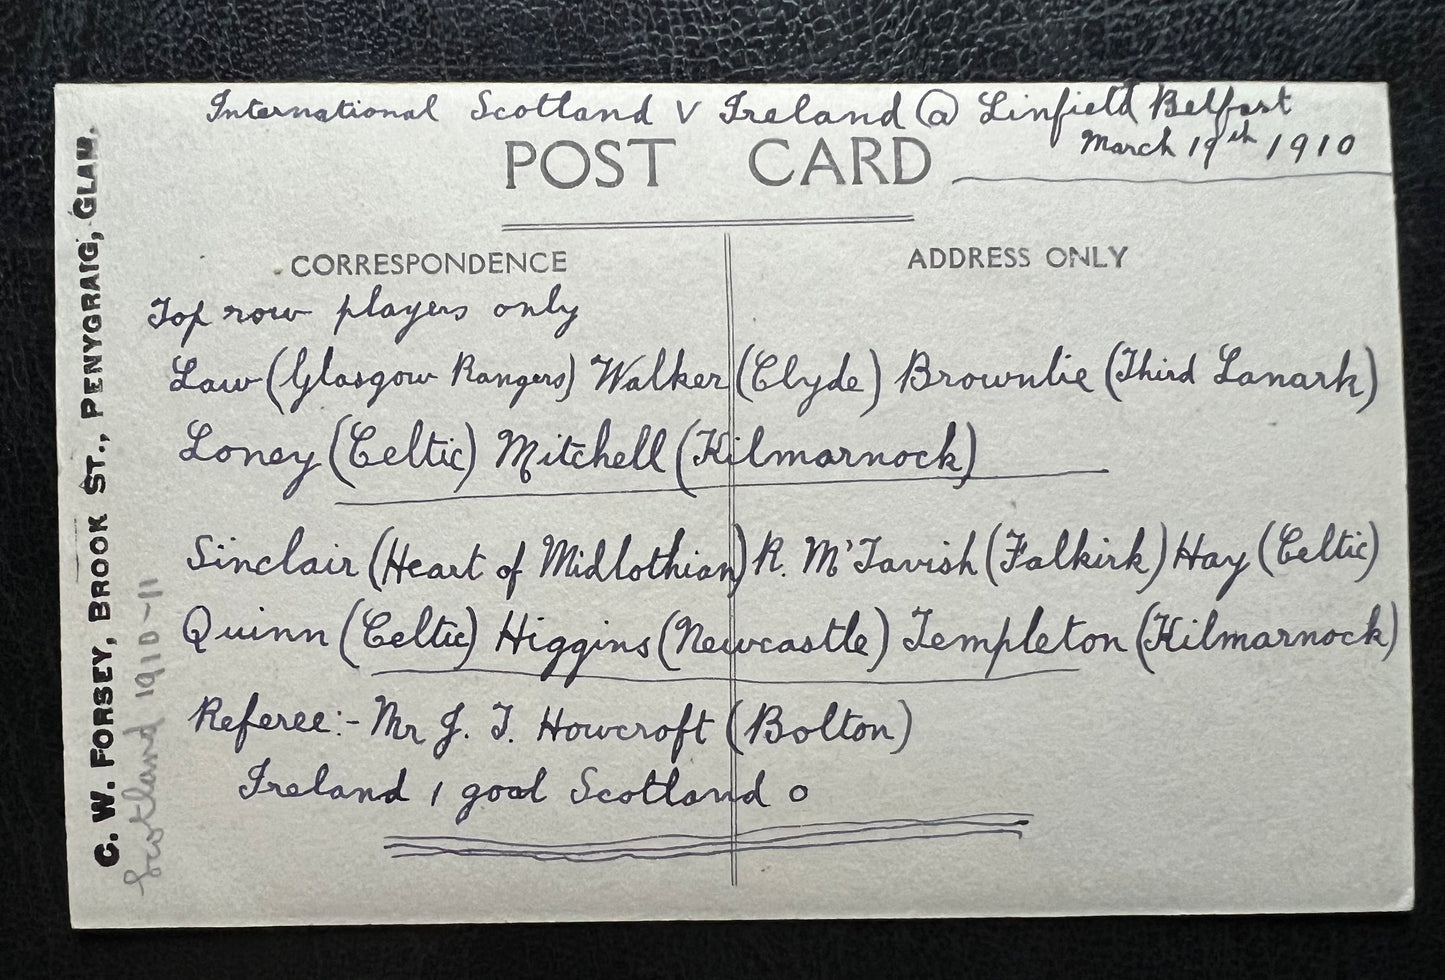 International Scotland v Ireland @ Linfield Belfast
March 19th 1910
POST CARD
CORRESPONDENCE
ADDRESS ONLY
Top row players only
Law (Glasgow Rangers) Walker (Clyde) Brownlie (Third Lanark)
Loney (Celtic) Mitchell (Kilmarnock)
Sinclair (Heart of Midlothian) R. M'Tavish (Falkirk) Hay (Celtic)
Quinn (Celtic) Higgins (Newcastle) Templeton (Kilmarnock)
Referee:- Mr J. T. Howcroft (Bolton)
Ireland 1 goal Scotland 0
C. W. FORSEY, BROOK ST., PENYGRAIG, GLAM.
Scotland 1910-11